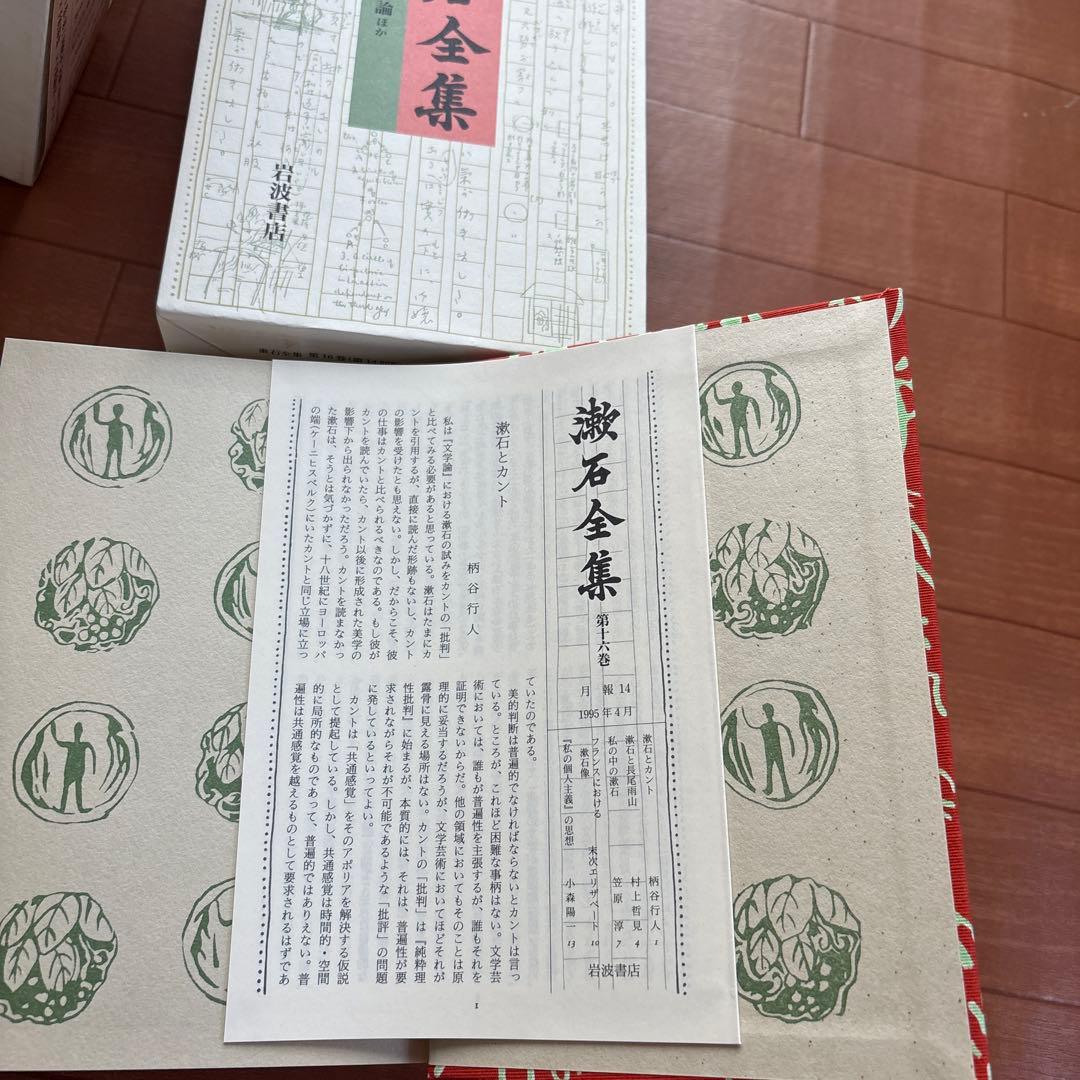 全集
論ほか
岩波書店
漱石全集 第16巻
漱石全集
第十六巻
月報 14
1995年4月
漱石とカント 柄谷行人 1
漱石と長尾雨山 村上哲見 4
私の中の漱石 笠原淳 7
フランスにおける
漱石像 末次エリザベート 10
『私の個人主義』の思想 小森陽一 13
岩波書店
漱石とカント
柄谷行人
私は『文学論』における漱石の試みをカントの「批判」
と比べてみる必要があると思っている。漱石はたまにカ
ントを引用するが、直接に読んだ形跡もないし、カント
の影響を受けたとも思えない。しかし、だからこそ、彼
の仕事はカントと比べられるべきなのである。もし彼が
カントを読んでいたら、カント以後に形成された美学の
影響下から出られなかっただろう。カントを読まなかっ
た漱石は、そうとは気づかずに、十八世紀にヨーロッパ
の端(ケーニヒスベルク)にいたカントと同じ立場に立っ
ていたのである。
美的判断は普遍的でなければならないとカントは言っ
ている。ところが、これほど困難な事柄はない。文学芸
術においては、誰もが普遍性を主張するが、誰もそれを
証明できないからだ。他の領域においてもそのことは原
理的に妥当するだろうが、文学芸術においてほどそれが
露骨に見える場所はない。カントの「批判」は『純粋理
性批判』に始まるが、本質的には、それは、普遍性が要
求されながらそれが不可能であるような「批評」の問題
に発しているといってよい。
カントは「共通感覚」をそのアポリアを解決する仮説
として提起している。しかし、共通感覚は時間的・空間
的に局所的なものであって、普遍的ではありえない。普
遍性は共通感覚を越えるものとして要求されるはずであ
1